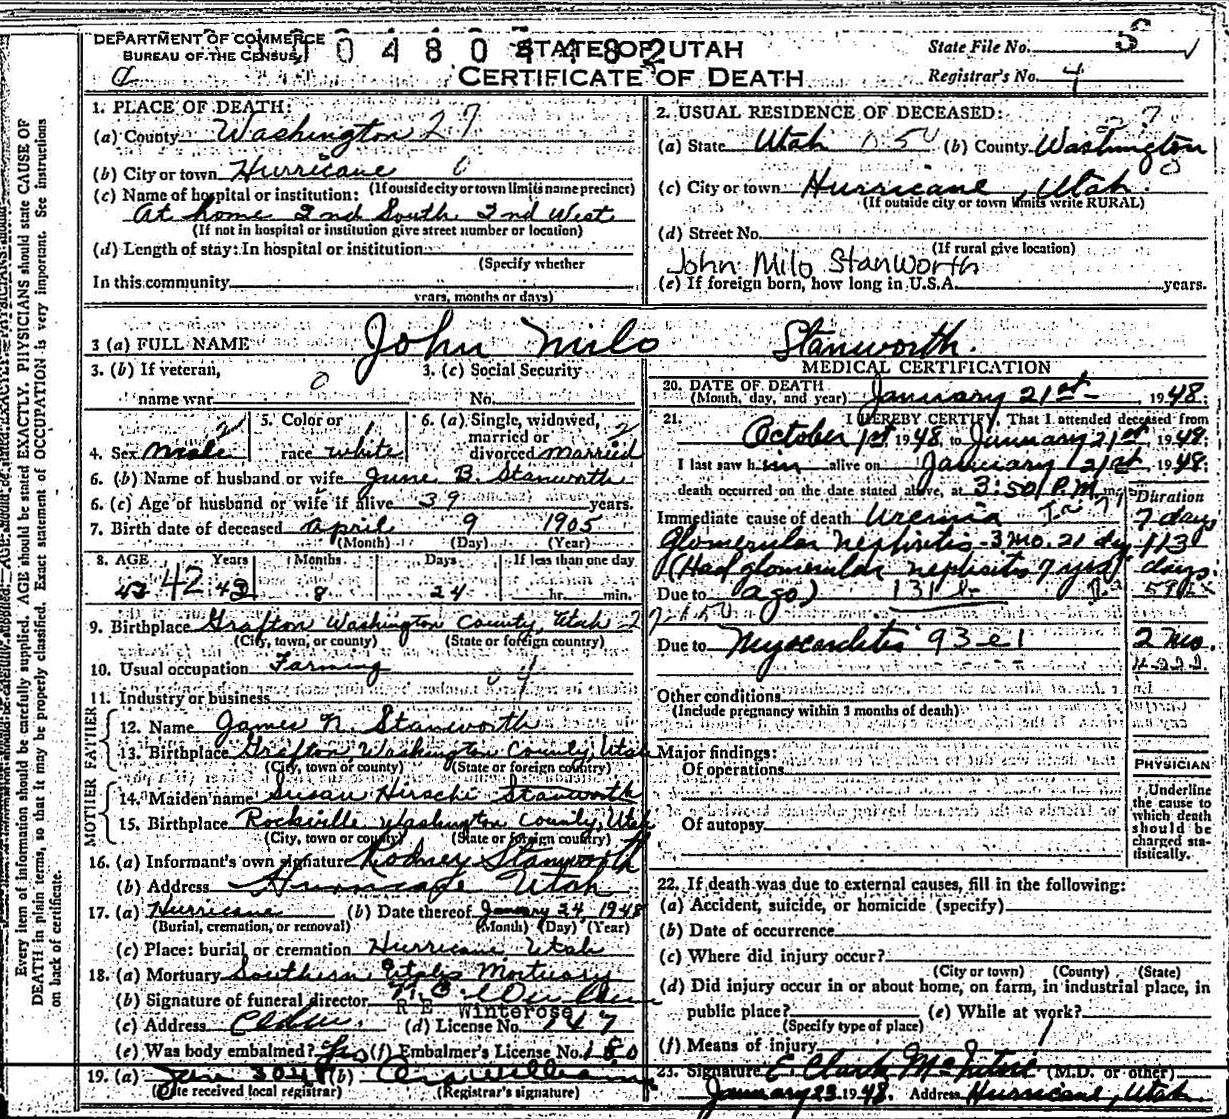 DEPARTMENT OF COMMERCE
BUREAU OF THE CENSUS
STATE OF UTAH
CERTIFICATE OF DEATH
State File No. 5
Registrar's No. 4
Every item of information should be carefully supplied. AGE should be stated EXACTLY. PHYSICIANS should state CAUSE OF
DEATH in plain terms, so that it may be properly classified. Exact statement of OCCUPATION is very important. See instructions
on back of certificate.
1. PLACE OF DEATH:
(a) County Washington 27
(b) City or town Hurricane
(If outside city or town limits name precinct)
(c) Name of hospital or institution:
At home 2nd South 2nd West
(If not in hospital or institution give street number or location)
(d) Length of stay: In hospital or institution
(Specify whether
In this community
years, months or days)
2. USUAL RESIDENCE OF DECEASED:
(a) State Utah (b) County Washington
(c) City or town Hurricane, Utah
(If outside city or town limits write RURAL)
(d) Street No.
(If rural give location)
John Milo Stanworth
(e) If foreign born, how long in U.S.A. years.
3 (a) FULL NAME John Milo Stanworth.
3. (b) If veteran, 3. (c) Social Security
name war No.
4. Sex Male 5. Color or race white 6. (a) Single, widowed, married or divorced married
6. (b) Name of husband or wife June B. Stanworth
6. (c) Age of husband or wife if alive 39 years.
7. Birth date of deceased April 9 1905
(Month) (Day) (Year)
8. AGE Years Months Days If less than one day
42 8 24 hr. min.
9. Birthplace Grafton Washington County, Utah
(City, town, or county) (State or foreign country)
10. Usual occupation Farming
11. Industry or business
FATHER
12. Name James N. Stanworth
13. Birthplace Grafton Washington County, Utah
(City, town or county) (State or foreign country)
MOTHER
14. Maiden name Susan Hirschi Stanworth
15. Birthplace Rockville Washington County, Utah
(City, town or county) (State or foreign country)
16. (a) Informant's own signature Rodney Stanworth
(b) Address Hurricane Utah
17. (a) Hurricane (b) Date thereof January 24 1948
(Burial, cremation, or removal) (Month) (Day) (Year)
(c) Place: burial or cremation Hurricane Utah
18. (a) Mortuary Southern Utah Mortuary
(b) Signature of funeral director
R E Winterose
(c) Address Cedar. (d) License No. 147
(e) Was body embalmed? Yes (f) Embalmer's License No. 180
19. (a) Jan 30 48 (b)
(Date received local registrar) (Registrar's signature)
MEDICAL CERTIFICATION
20. DATE OF DEATH
(Month, day, and year) January 21st 1948;
21. I HEREBY CERTIFY, That I attended deceased from
October 1st 1948, to January 21st, 1948;
I last saw him alive on January 21st 1948;
death occurred on the date stated above, at 3:50 P.M. m.
Duration
Immediate cause of death Uremia 7 days
Glomerular nephritis - 3 mo. 21 day 113
(Had glomerular nephsits 7 years days
Due to ago)
Due to Myocarditis 93-e1 2 mo.
Other conditions
(Include pregnancy within 3 months of death)
Major findings:
Of operations
Of autopsy
PHYSICIAN
Underline
the cause to
which death
should be
charged sta-
tistically.
22. If death was due to external causes, fill in the following:
(a) Accident, suicide, or homicide (specify)
(b) Date of occurrence
(c) Where did injury occur?
(City or town) (County) (State)
(d) Did injury occur in or about home, on farm, in industrial place, in
public place? (e) While at work?
(Specify type of place)
(f) Means of injury
23. Signature E. Clark McIntire (M.D. or other)
January 23 1948. Address Hurricane, Utah.